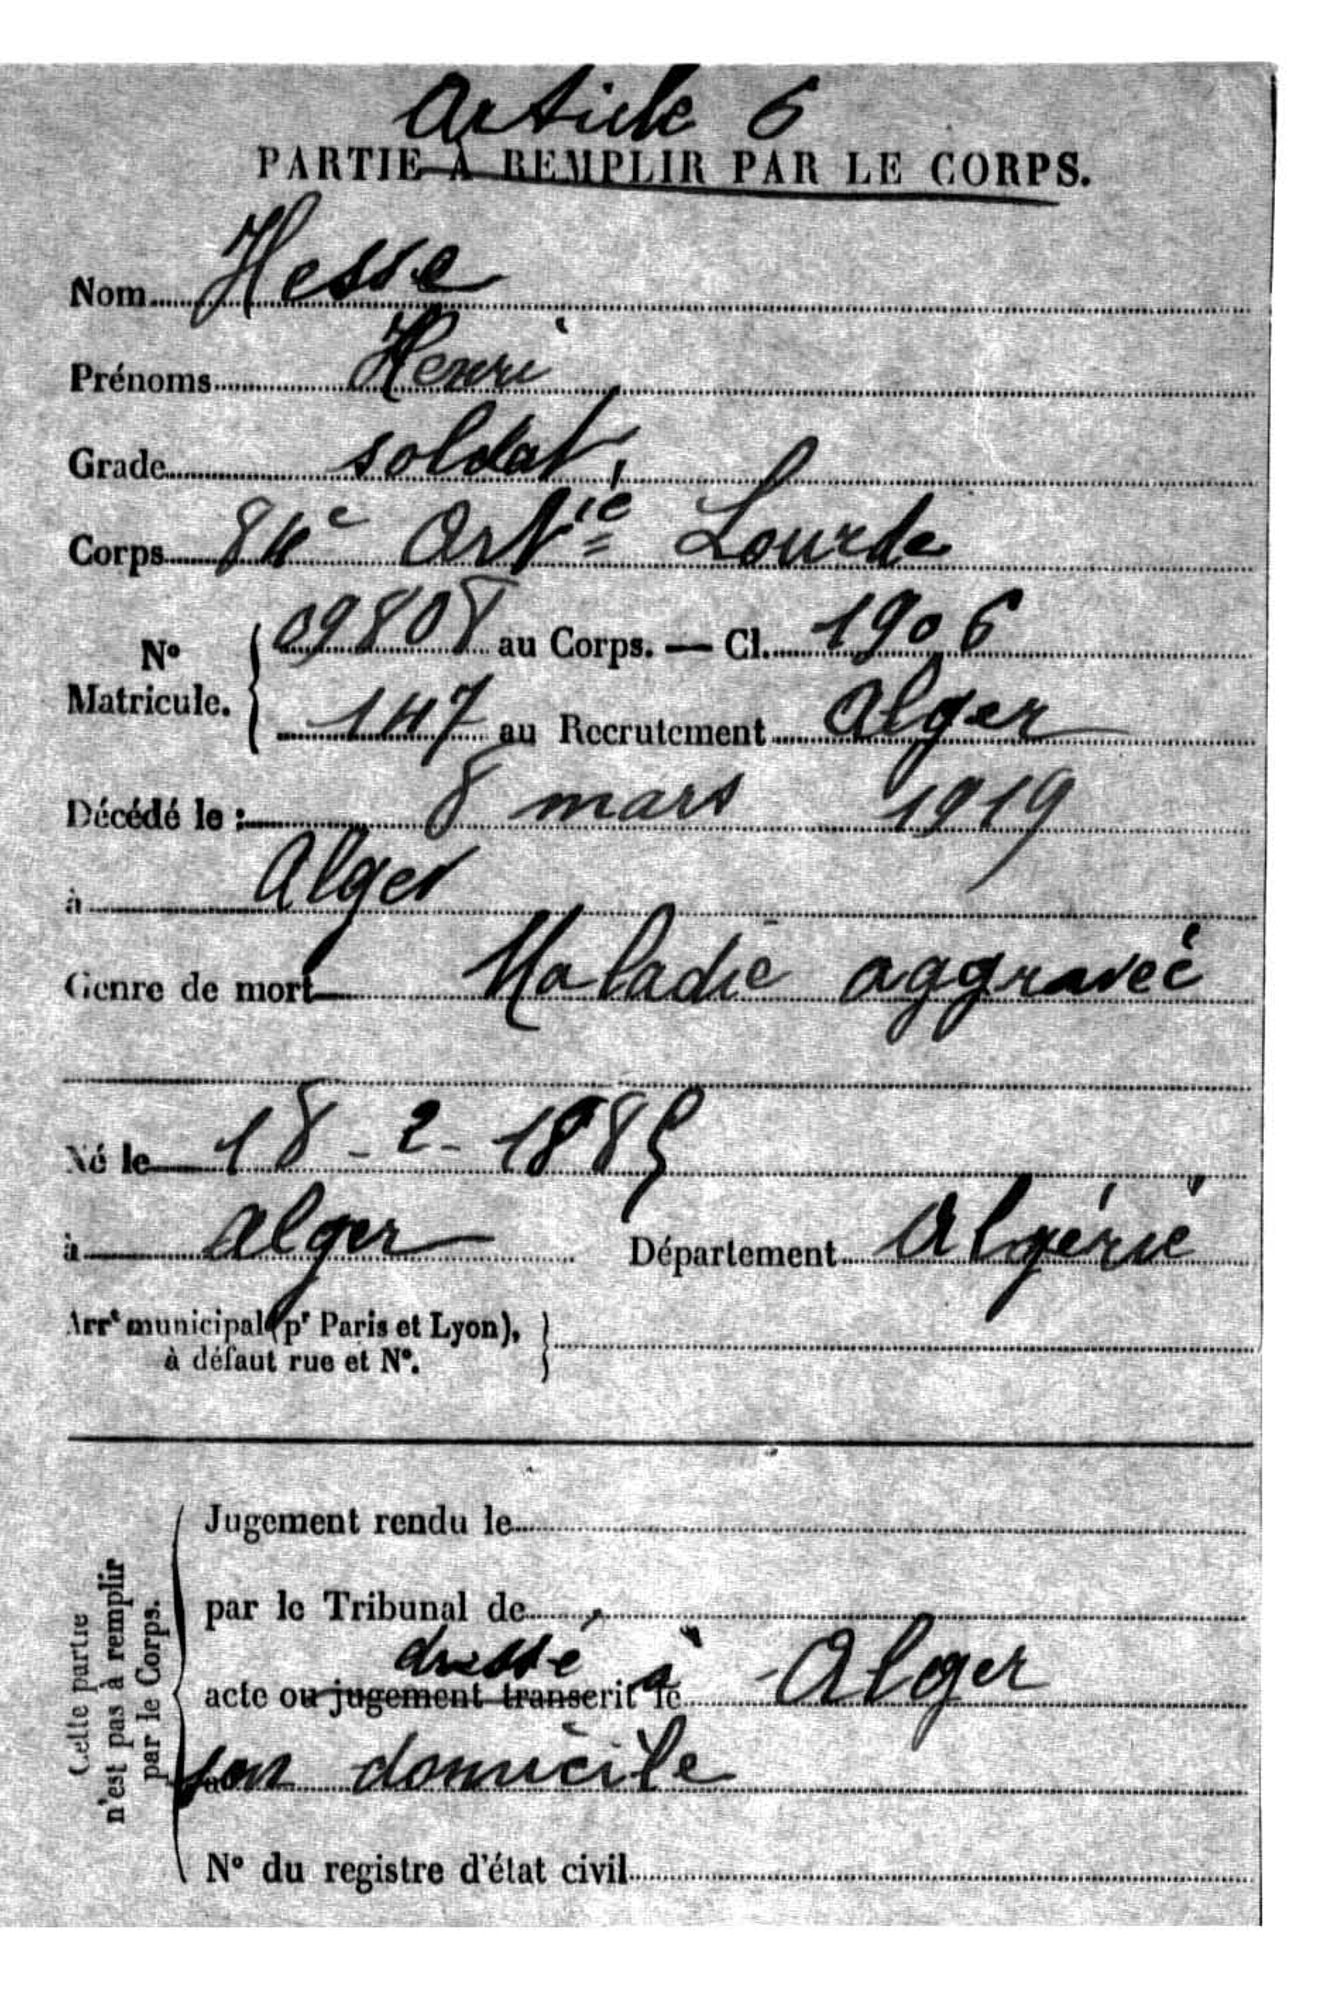 Article 6
PARTIE A REMPLIR PAR LE CORPS.
Nom Hesse
Prénoms Henri
Grade soldat
Corps 84e Artie Lourde
No Matricule. { 09808 au Corps. — Cl. 1906
147 au Recrutement Alger
Décédé le : 8 mars 1919
à Alger
Genre de mort Maladie aggravée
Né le 18-2-1885
à Alger Département Algérie
Arrt municipal (pr Paris et Lyon),
à défaut rue et N°.
Cette partie
n'est pas à remplir
par le Corps.
Jugement rendu le
par le Tribunal de
dressé à
acte ou jugement transcrit le Alger
son domicile
N° du registre d'état civil